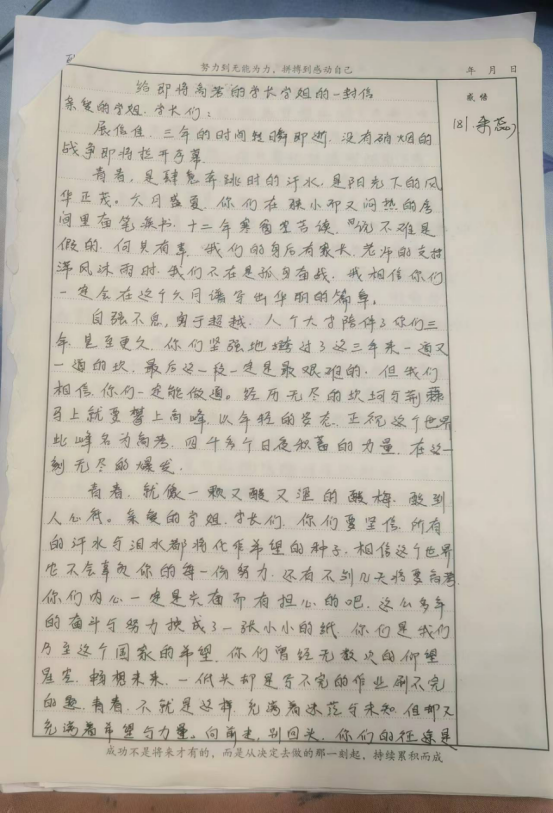 努力到无能为力，拼搏到感动自己
年 月 日
成 绩
181.余蕊
给即将高考的学长学姐的一封信
亲爱的学姐、学长们：
展信佳，三年的时间转瞬即逝，没有硝烟的
战争即将拉开序幕。
青春，是肆意奔跳时的汗水，是阳光下的风
华正茂。六月盛夏，你们在狭小却又闷热的房
间里奋笔疾书，十二年寒窗苦读，说不难是
假的，何其有幸，我们的身后有家长、老师的支持
淋风沐雨时，我们不在是孤身奋战，我相信你们
一定会在这个六月谱写出华丽的篇章。
自强不息，勇于超越，八个大字陪伴了你们三
年，甚至更久，你们坚强地跨过了这三年来一道又
一道的坎，最后这一段一定是最艰难的，但我们
相信，你们一定能做道。经历无尽的坎坷与荆棘
马上就要攀上高峰，以年轻的姿态，正视这个世界
此峰名为高考，四千多个日夜积蓄的力量，在这一
刻无尽的爆发。
青春，就像一颗又酸又涩的酸梅，酸到
人心得。亲爱的学姐、学长们，你们要坚信，所有
的汗水与泪水都将化作希望的种子，相信这个世界
它不会辜负你的每一份努力，还有不到几天将要高考
你们内心一定是兴奋而有担心的吧，这么多年
的奋斗与努力换成了一张小小的纸，你们是我们
乃至这个国家的希望，你们曾经无数次的仰望
星空，畅想未来，一低头却是写不完的作业刷不完
的题，青春，不就是这样，充满着迷茫与未知，但却又
充满着希望与力量。向前走，别回头，你们的征途是
成功不是将来才有的，而是从决定去做的那一刻起，持续累积而成